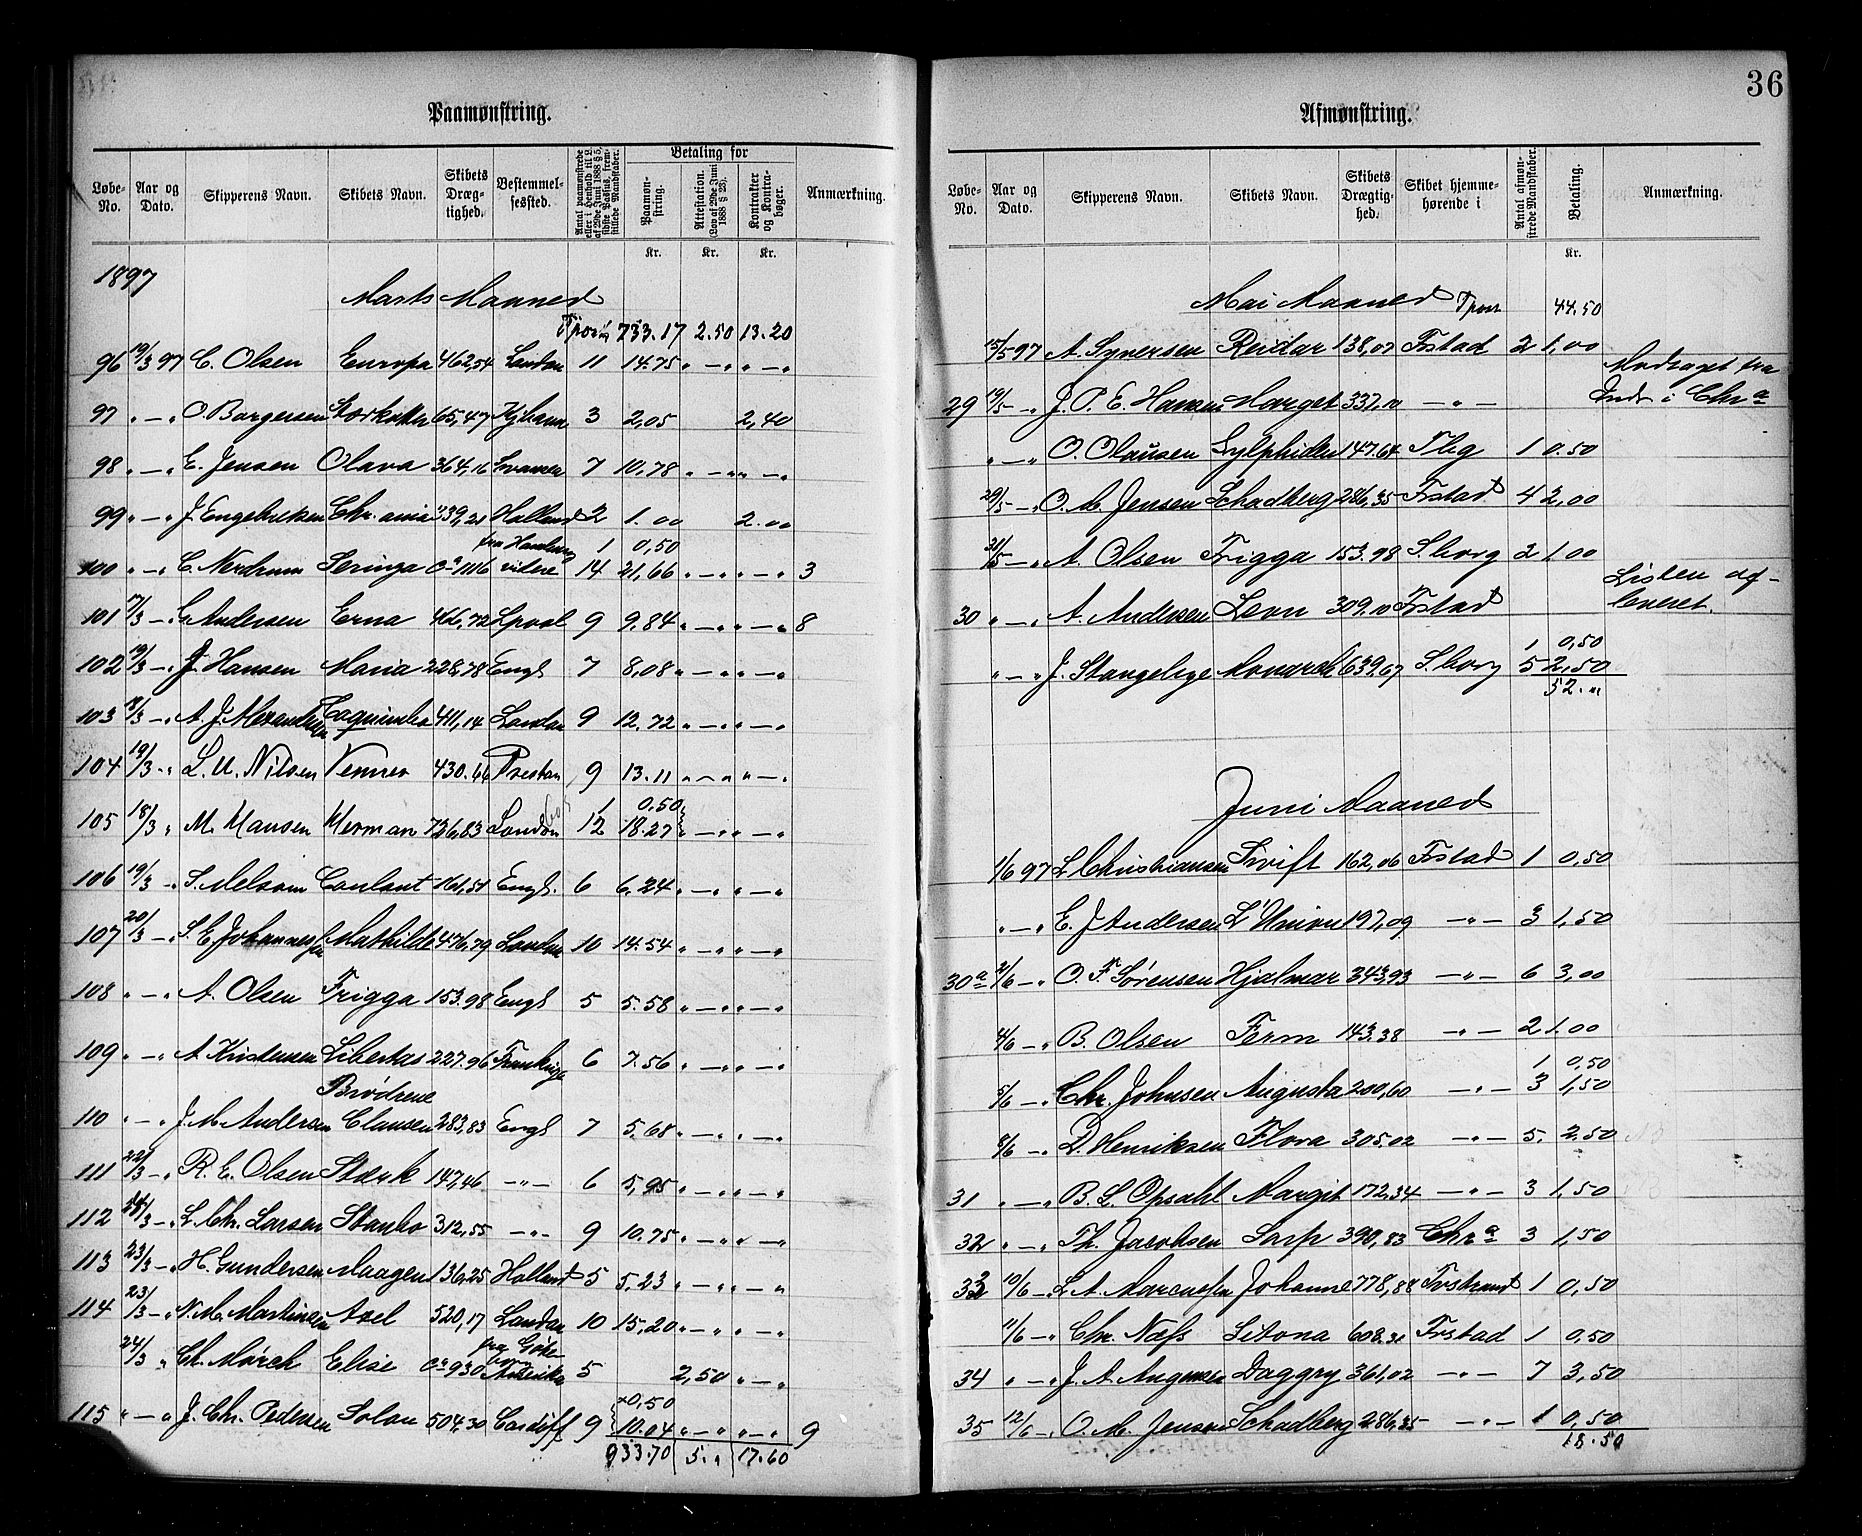 36
Paamønstring.
Løbe-No. Aar og Dato. Skipperens Navn. Skibets Navn. Skibets Dræg-tighed. Bestemmel-sessted. Antal paamønstrede eller i Henhold til L. af 29de Juni 1888 § 5, sidste Passus, frem-stillede Mandskaber. Betaling for Paamøn-string. Attestation. (Lov af 29de Juni 1888 § 23). Kontrakter og Kontra-bøger. Anmærkning.
Kr. Kr. Kr.
1897
Marts Maaned
Tport 733.17 2.50 13.20
96 19/3 97 C. Olsen Europa 462,54 London 11 14.75 " — " " — "
97 " — " O. Borgersen Stærkodder 65,47 Kjbhavn 3 2,05 2,40
98 " — " E. Jensen Olava 364,16 Svansea 7 10.78 " — " " — "
99 " — " J. Engebretsen Chr.ania 339,21 Holland 2 1.00 2.00
fra Hamburg 1 0,50
100 " — " C. Nerdrum Seringa ca 1116 videre 14 21,66 " — " " — " 3
101 17/3 — " G. Andersen Erna 466,72 Lpool 9 9,84 " — " " — " 8
102 19/3 — " J. Hansen Maria 228,78 Engl 7 8,08 " — " " — "
103 18/3 — " A. J. Alexandersen Coquimbo 411,14 London 9 12.72 " — " " — "
104 19/3 — " L. U. Nilsen Venner 430.66 Preston 9 13.11 " — " " — "
1 0.50
105 18/3 " M. Hansen Herman 726,83 London 12 18.27 " — " " — "
106 19/3 — " S. Melsom Conlant 161,51 Engl. 6 6.24 " — " " — "
107 20/3 — " S. E. Johannessen Mathilde 476,79 London 10 14.54 " — " " — "
108 " — " A. Olsen Frigga 153.98 Engl 5 5.58 " — " " — "
109 " — " A. Kristensen Libertas 227.96 6 7.56 " — " " — "
Brødrene
110 " — " J. M. Andersen Clausen 283,83 Engl 7 5,68 " — " " — "
111 22/3 — " R. E. Olsen Stærk 147,46 — " — 6 5,95 " — " " — "
112 — " L. Chr. Larsen Stanbo 312,55 — " — 9 10.75 " — " " — "
113 23/3 — " H. Gundersen Maagen 136,25 Holland 5 5,23 " — " " — "
114 23/3 — " N. M. Martinsen Axel 520,17 London 10 15,20 " — " " — "
fra Gøte-
borg
24/3 " Ch. Mörch Elise ca 930 Amerika 5 2,50 " — "
+0,50
115 " — " J. Chr. Pedersen Solon 504,30 Cardiff 9 10.04 " — " " — " 9
933.70 5. " 17.60
Afmønstring.
Løbe-No. Aar og Dato. Skipperens Navn. Skibets Navn. Skibets Drægtig-hed. Skibet hjemme-hørende i Antal afmøn-strede Mandskaber. Betaling. Anmærkning.
Kr.
Mai Maaned Tport 44.50
15/5 97 A. Synersen Reidar 138,07 Frstad 2 1,00
Modtaget fra
29 19/5 — " J. P. E. Hansen Marget 337,10 — " — Indr i Chra
" — " O. Olausen Sylphiden 147.64 Tbg 1 0.50
29/5 — " O. M. Jensen Schadberg 286,35 Frstad 4 2,00
31/5 — " A. Olsen Frigga 153.98 S.borg 2 1.00
Listen af-
30 " — " A. Andersen Leon 309,10 Frstad leveret.
1 0,50
" — " J. Stangebye Monarch 639,67 S.borg 5 2,50
52. "
Juni Maaned
1/6 97 L. Christiansen Swift 162,06 Frstad 1 0,50
" — " E. J Andersen L'Union 197,09 — " — 3 1,50
30a 2/6 — " O. F. Sørensen Hjalmar 343,93 — " — 6 3,00
4/6 — " B. Olsen Ferm 143.38 — " — 2 1.00
1 0,50
5/6 — " Chr. Johnsen Augusta 200,60 — " — 3 1,50
8/6 — " D. Henriksen Flora 305.02 — " — 5. 2.50
31 " — " B. L. Opsahl Margit 172,34 — " — 3 1,50
32 " — " Th. Jacobsen Sarp 390,83 Chra 3 1,50
33 10/6 — " L. A. Marcussen Johanne 778,88 Frstrand 1 0,50
11/6 — " Chr. Næss Sitona 608.31 Frstad 1 0,50
34 " — " J. A. Augensen Daggry 361,02 — " — 7 3,50
35 12/6 — " O. M. Jensen Schadberg 286,35 — " — 1 0,50
18.50